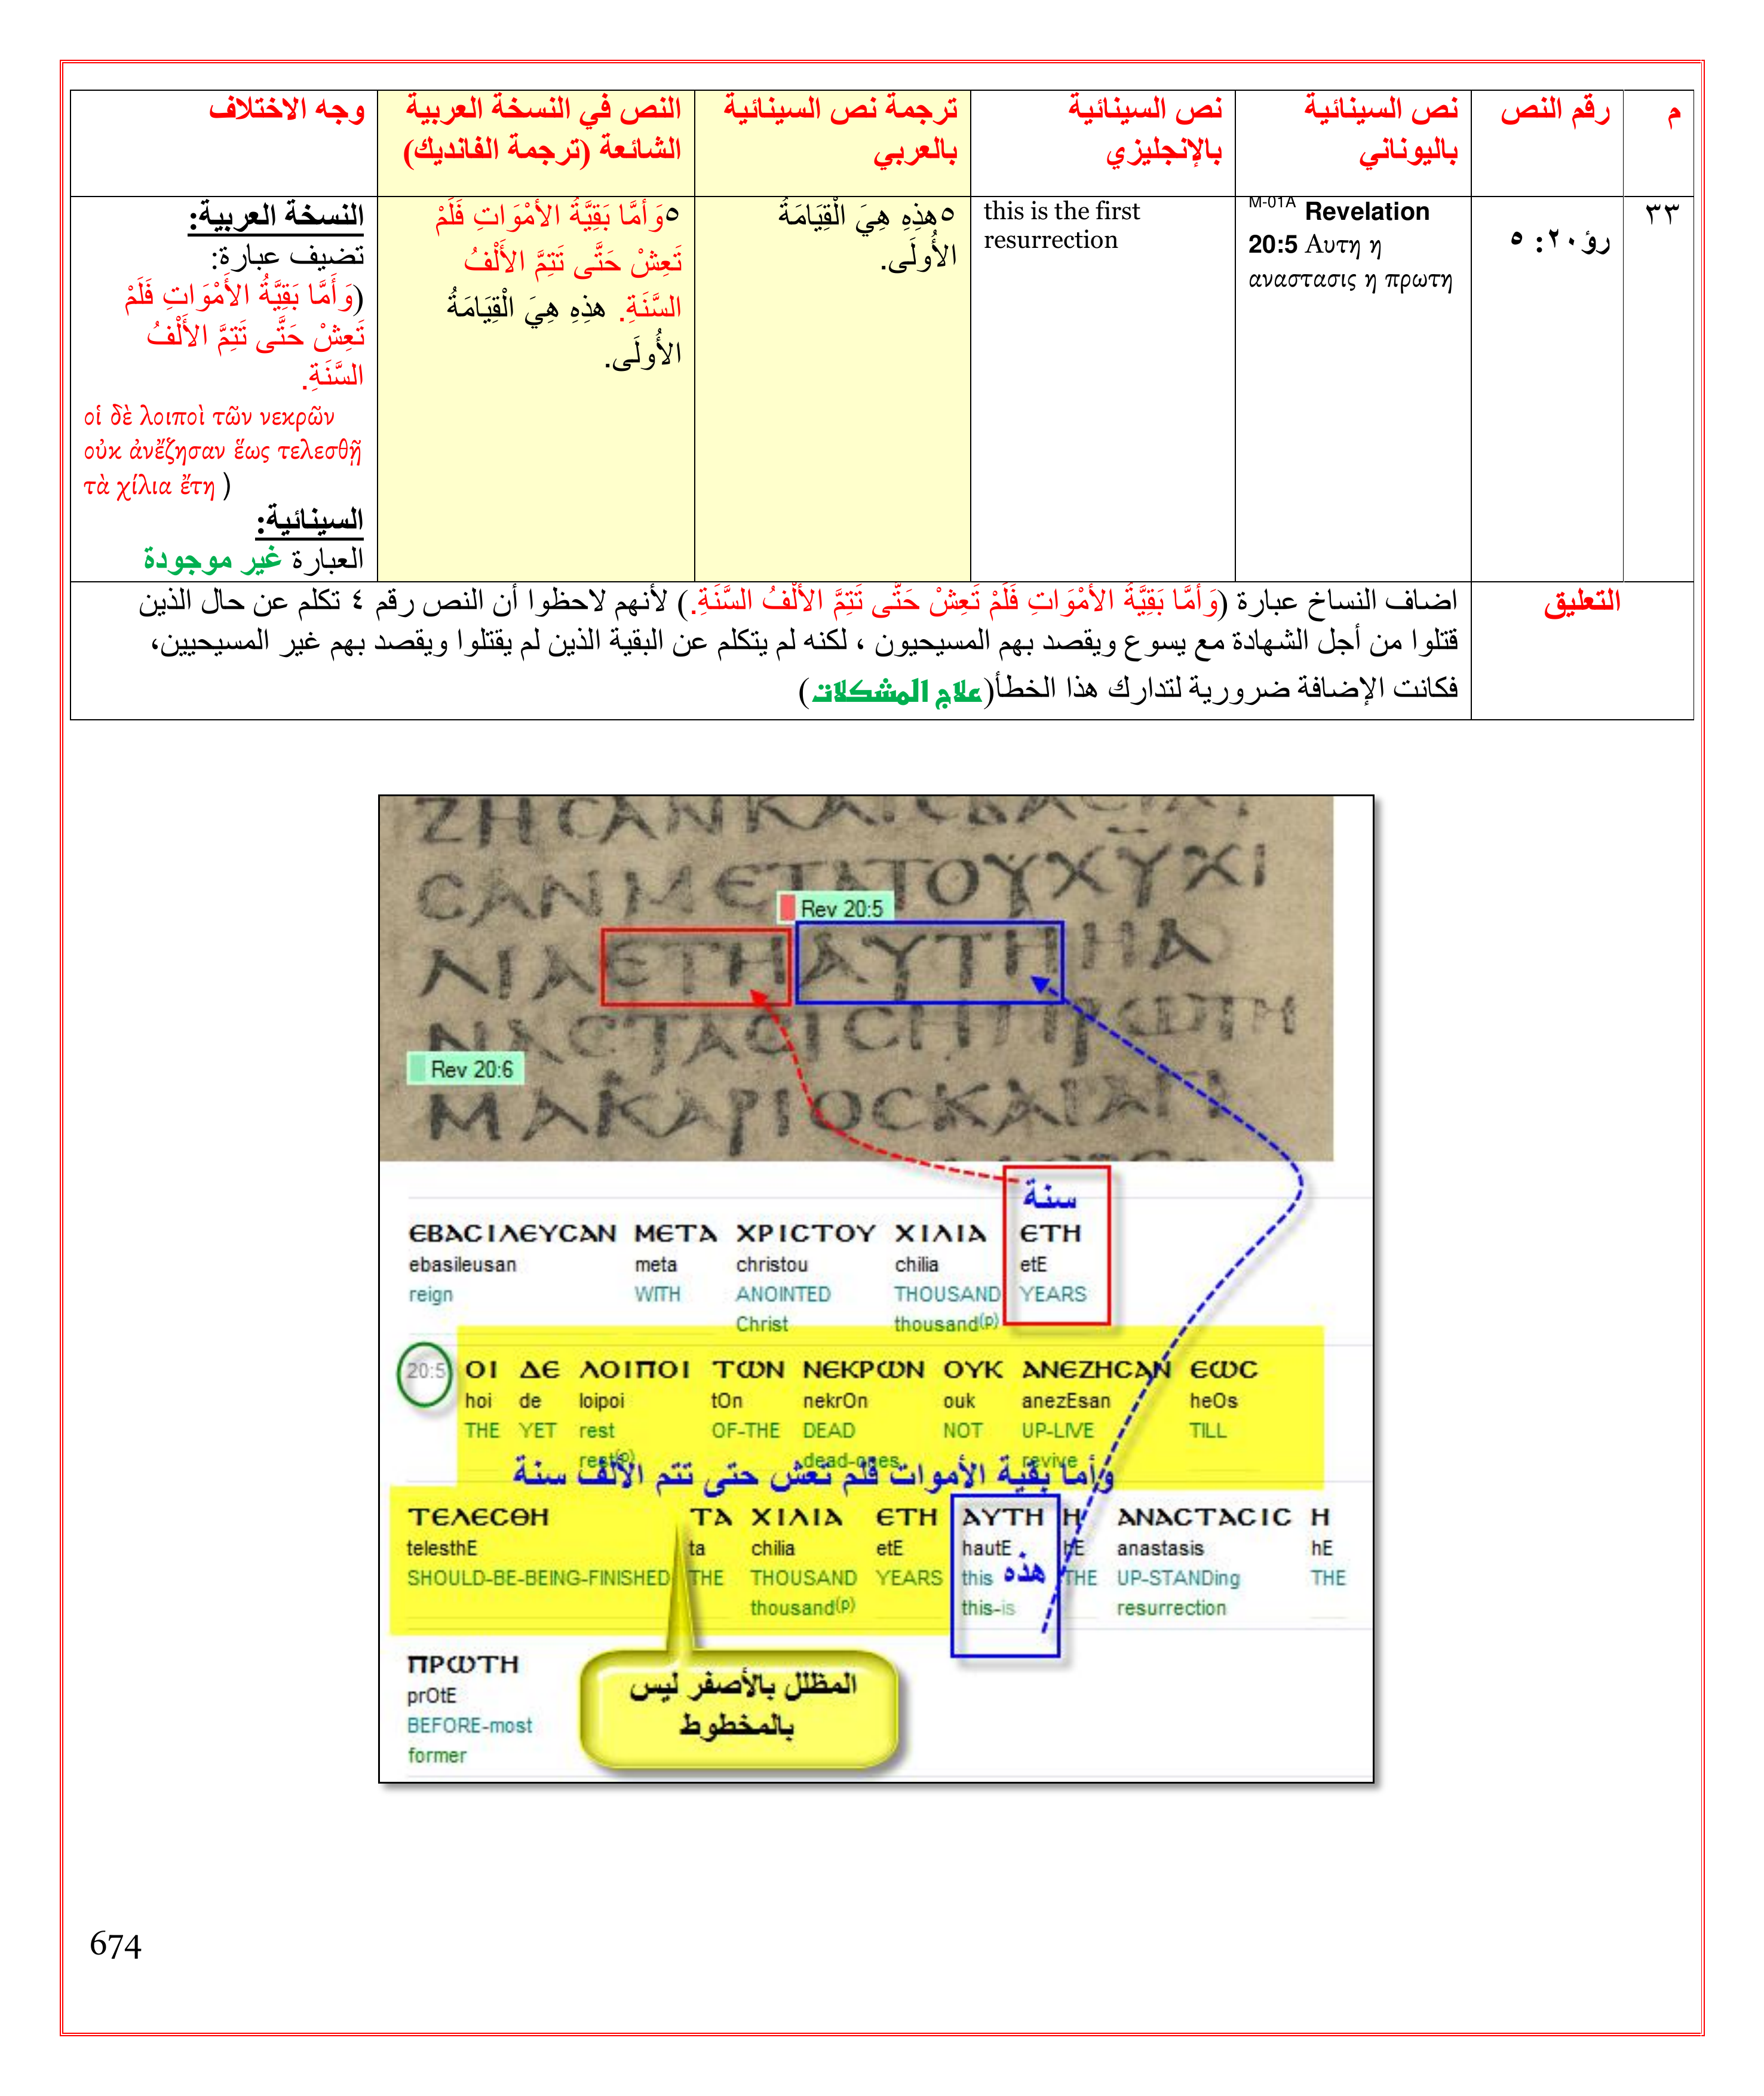 م
رقم النص
نص السينائية
باليوناني
نص السينائية
بالإنجليزي
ترجمة نص السينائية
بالعربي
النص في النسخة العربية
الشائعة (ترجمة الفانديك)
وجه الاختلاف
٣٣
رؤ٢٠: ٥
M-01A Revelation
20:5 Αυτη η
αναστασις η πρωτη
this is the first
resurrection
٥هذِهِ هِيَ الْقِيَامَةُ
الأُولَى.
٥وَأَمَّا بَقِيَّةُ الأَمْوَاتِ فَلَمْ
تَعِشْ حَتَّى تَتِمَّ الأَلْفُ
السَّنَةِ. هذِهِ هِيَ الْقِيَامَةُ
الأُولَى.
النسخة العربية:
تضيف عبارة:
(وَأَمَّا بَقِيَّةُ الأَمْوَاتِ فَلَمْ
تَعِشْ حَتَّى تَتِمَّ الأَلْفُ
السَّنَةِ.
οἱ δὲ λοιποὶ τῶν νεκρῶν
οὐκ ἀνἔζησαν ἕως τελεσθῇ
τὰ χίλια ἔτη )
السينائية:
العبارة غير موجودة
التعليق
اضاف النساخ عبارة (وَأَمَّا بَقِيَّةُ الأَمْوَاتِ فَلَمْ تَعِشْ حَتَّى تَتِمَّ الأَلْفُ السَّنَةِ.) لأنهم لاحظوا أن النص رقم ٤ تكلم عن حال الذين
قتلوا من أجل الشهادة مع يسوع ويقصد بهم المسيحيون ، لكنه لم يتكلم عن البقية الذين لم يقتلوا ويقصد بهم غير المسيحيين،
فكانت الإضافة ضرورية لتدارك هذا الخطأ(علاج المشكلات)
CΑΝΜЄΤΑΤΟΥΧΥΧΙ
Rev 20:5
ΛΙΑЄΤΗΑΥΤΗΗΑ
ΝΑCΤΑCΙCΗΠΡωΤΗ
Rev 20:6
ΜΑΚΑΡΙΟCΚΑΙΑΓΙ
سنة
ЄΒΑCΙΛЄΥCΑΝ ΜЄΤΑ ΧΡΙCΤΟΥ ΧΙΛΙΑ ЄΤΗ
ebasileusan meta christou chilia etE
reign WITH ANOINTED THOUSAND YEARS
Christ thousand(p)
20:5 ΟΙ ΔЄ ΛΟΙΠΟΙ ΤωΝ ΝЄΚΡωΝ ΟΥΚ ΑΝЄΖΗCΑΝ ЄωC
hoi de loipoi tOn nekrOn ouk anezEsan heOs
THE YET rest OF-THE DEAD NOT UP-LIVE TILL
rest(p) dead-ones revive
وأما بقية الأموات فلم تعش حتى تتم الألف سنة
ΤЄΛЄCΘΗ ΤΑ ΧΙΛΙΑ ЄΤΗ ΑΥΤΗ Η ΑΝΑCΤΑCΙC Η
telesthE ta chilia etE hautE hE anastasis hE
SHOULD-BE-BEING-FINISHED THE THOUSAND YEARS this هذه THE UP-STANDing THE
thousand(p) this-is resurrection
ΠΡωΤΗ
prOtE
BEFORE-most
former
المظلل بالأصفر ليس
بالمخطوط
674